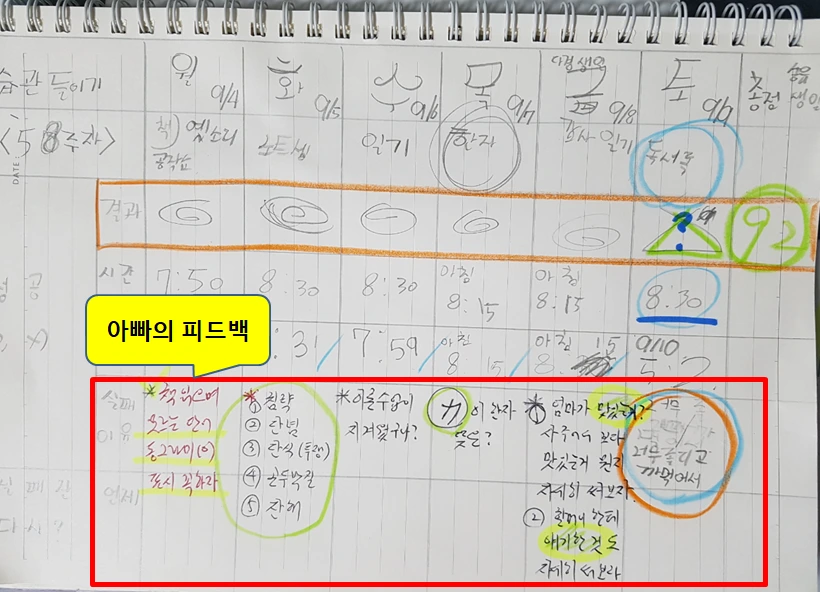 습관 들이기
월 9/4
화 9/5
수 9/6
목 9/7
9/8
토 9/9
총점
생일
<58주차>
책) 옛소리
공작소
노트정
일기
한자
감사 일기
독서록
DATE
결과
92
시간
7:50
8:30
8:30
아침
8:15
아침
8:15
8:30
성공
아빠의 피드백
31
7:59
아친
8:15
아침
8:
15
9/10
5:2
실패
이유
언제
* 책 읽으며
모르는 단어
동그라미(o)
표시 꼭하라
* ① 침략
② 단별
③ 단식(투쟁)
④ 곤두박질
⑤ 잔해
* 이순수업이
지겨웠구나?
이 한자
뜻은?
* ① 엄마가 맛있는거?
사주어서 보다
맛있는거 뭔지
자세히 써보자.
② 할머니 한테
얘기한 것 도
자세히 써보라
너무 졸리고
까먹어서
다시?